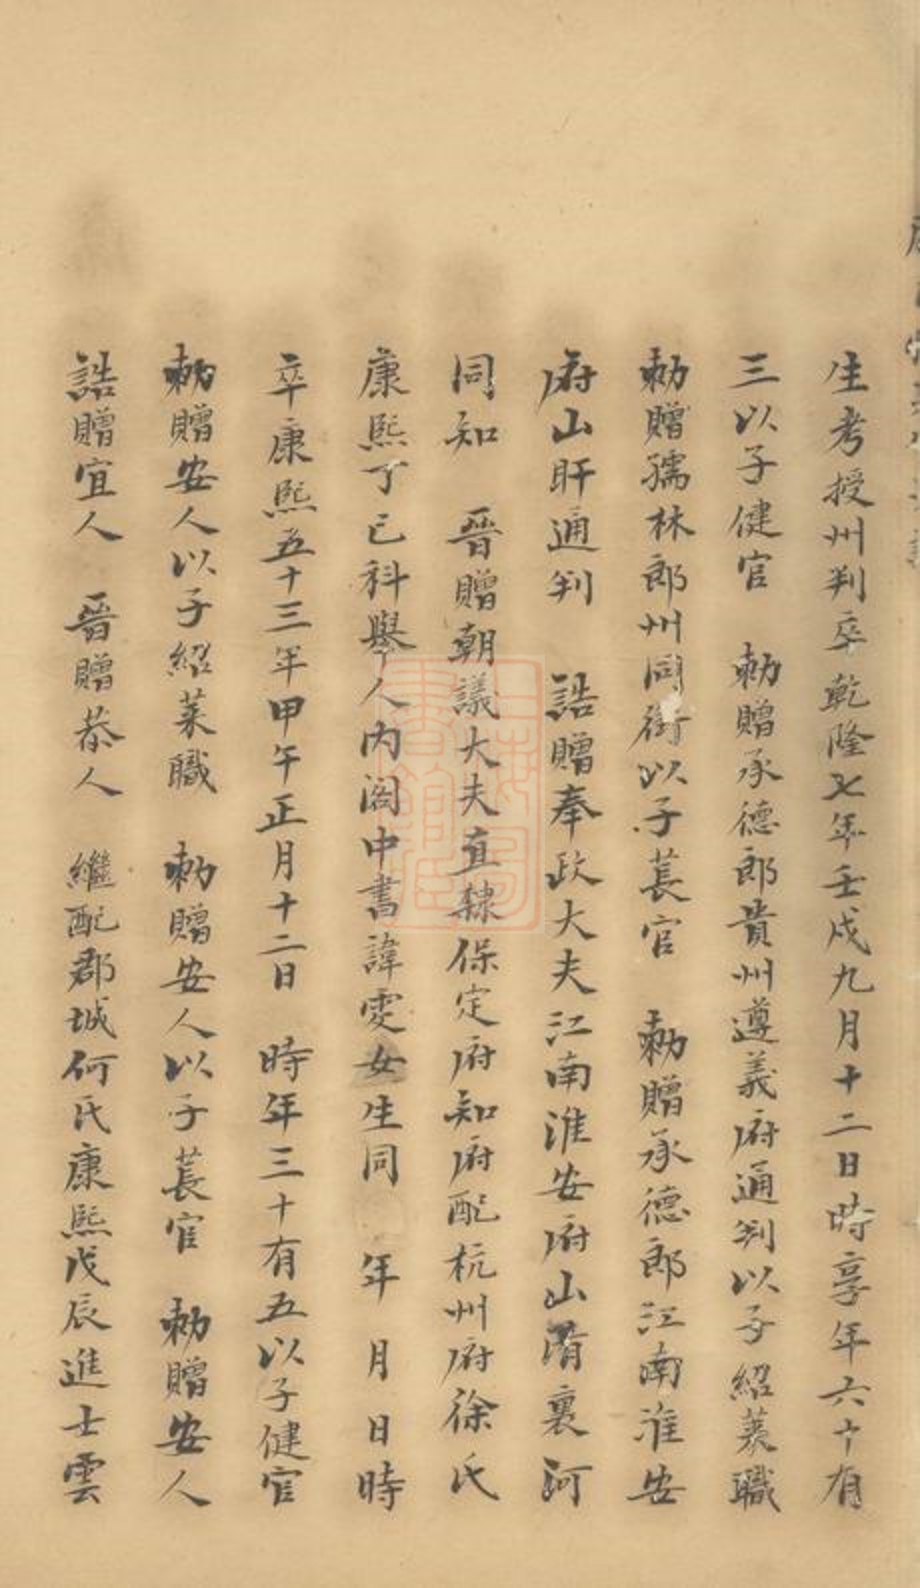 生考授州判卒乾隆七年壬戌九月十二日時享年六十有
三以子健官　勅贈承德郎貴州遵義府通判以子紹萊職
勅贈孺林郎州同銜以子萇官　勅贈承德郎江南淮安
府山盱通判　誥贈奉政大夫江南淮安府山清裏河
同知　晉贈朝議大夫直隸保定府知府配杭州府徐氏
康熙丁巳科舉人内閣中書諱雯女生同　年　月　日時
卒康熙五十三年甲午正月十二日　時年三十有五以子健官
勅贈安人以子紹萊職　勅贈安人以子萇官　勅贈安人
誥贈宜人　晉贈恭人　繼配郡城何氏康熙戊辰進士雲